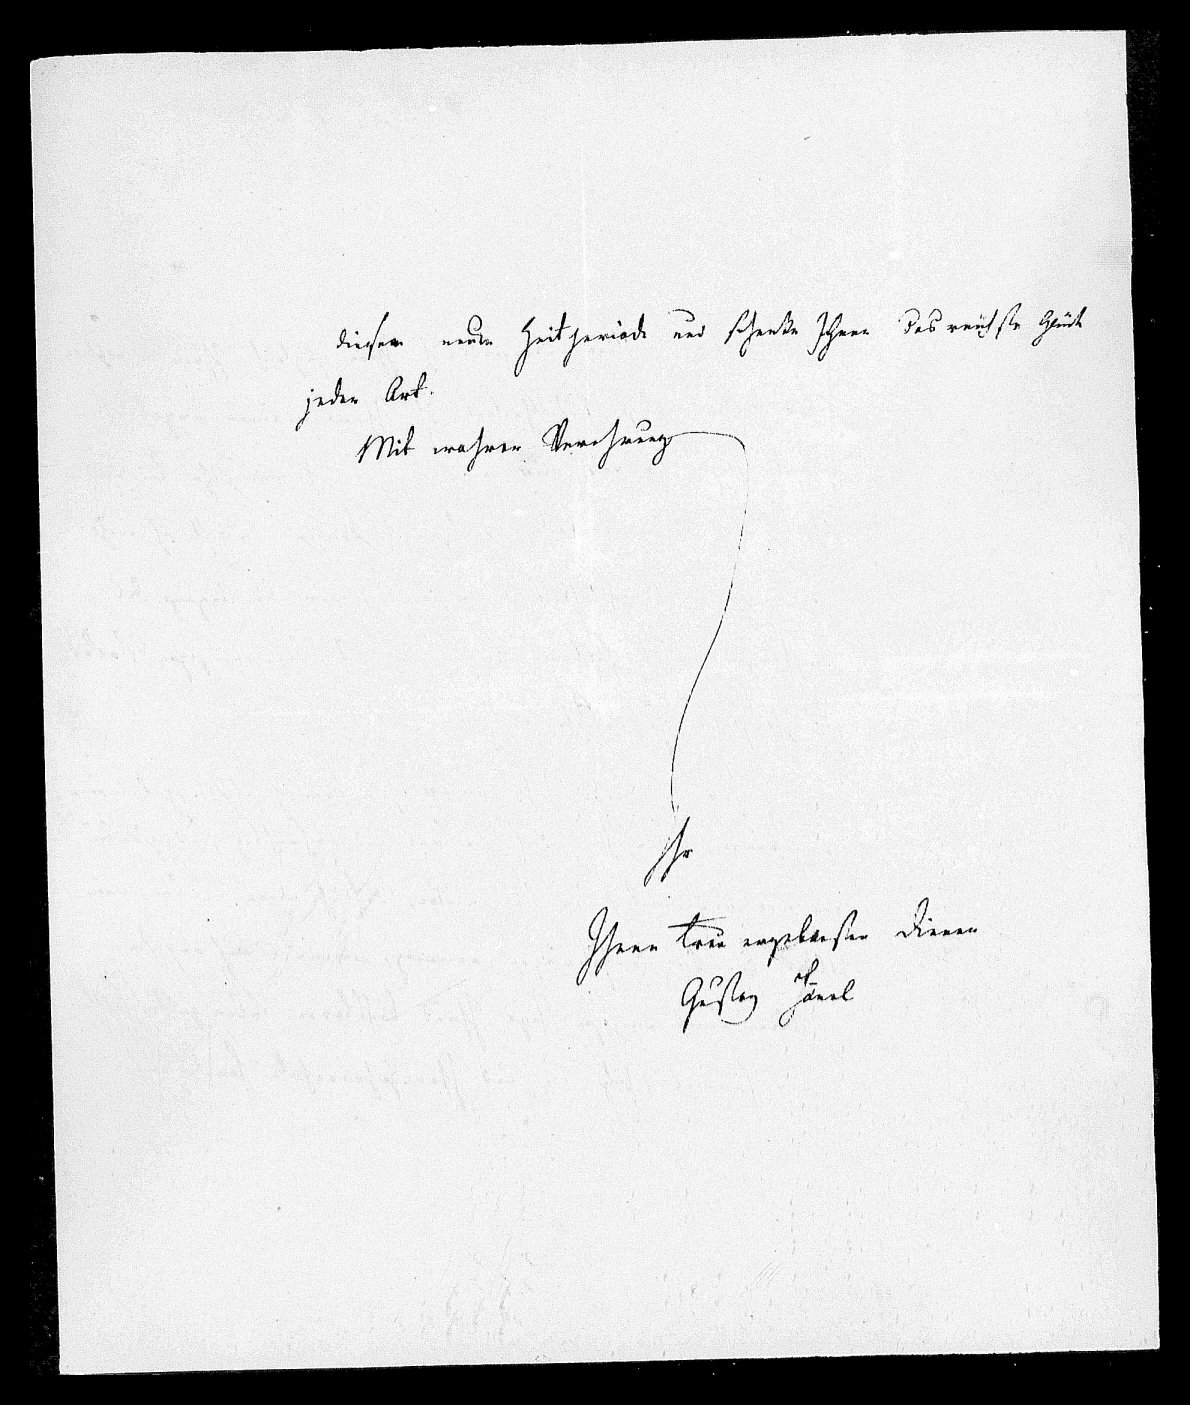 dieser neuen Zeitperiode und schenke Ihnen das reichste Glück
jeder Art.
Mit wahrer Verehrung
Ihr
Ihnen treu ergebenster Diener
Gustav